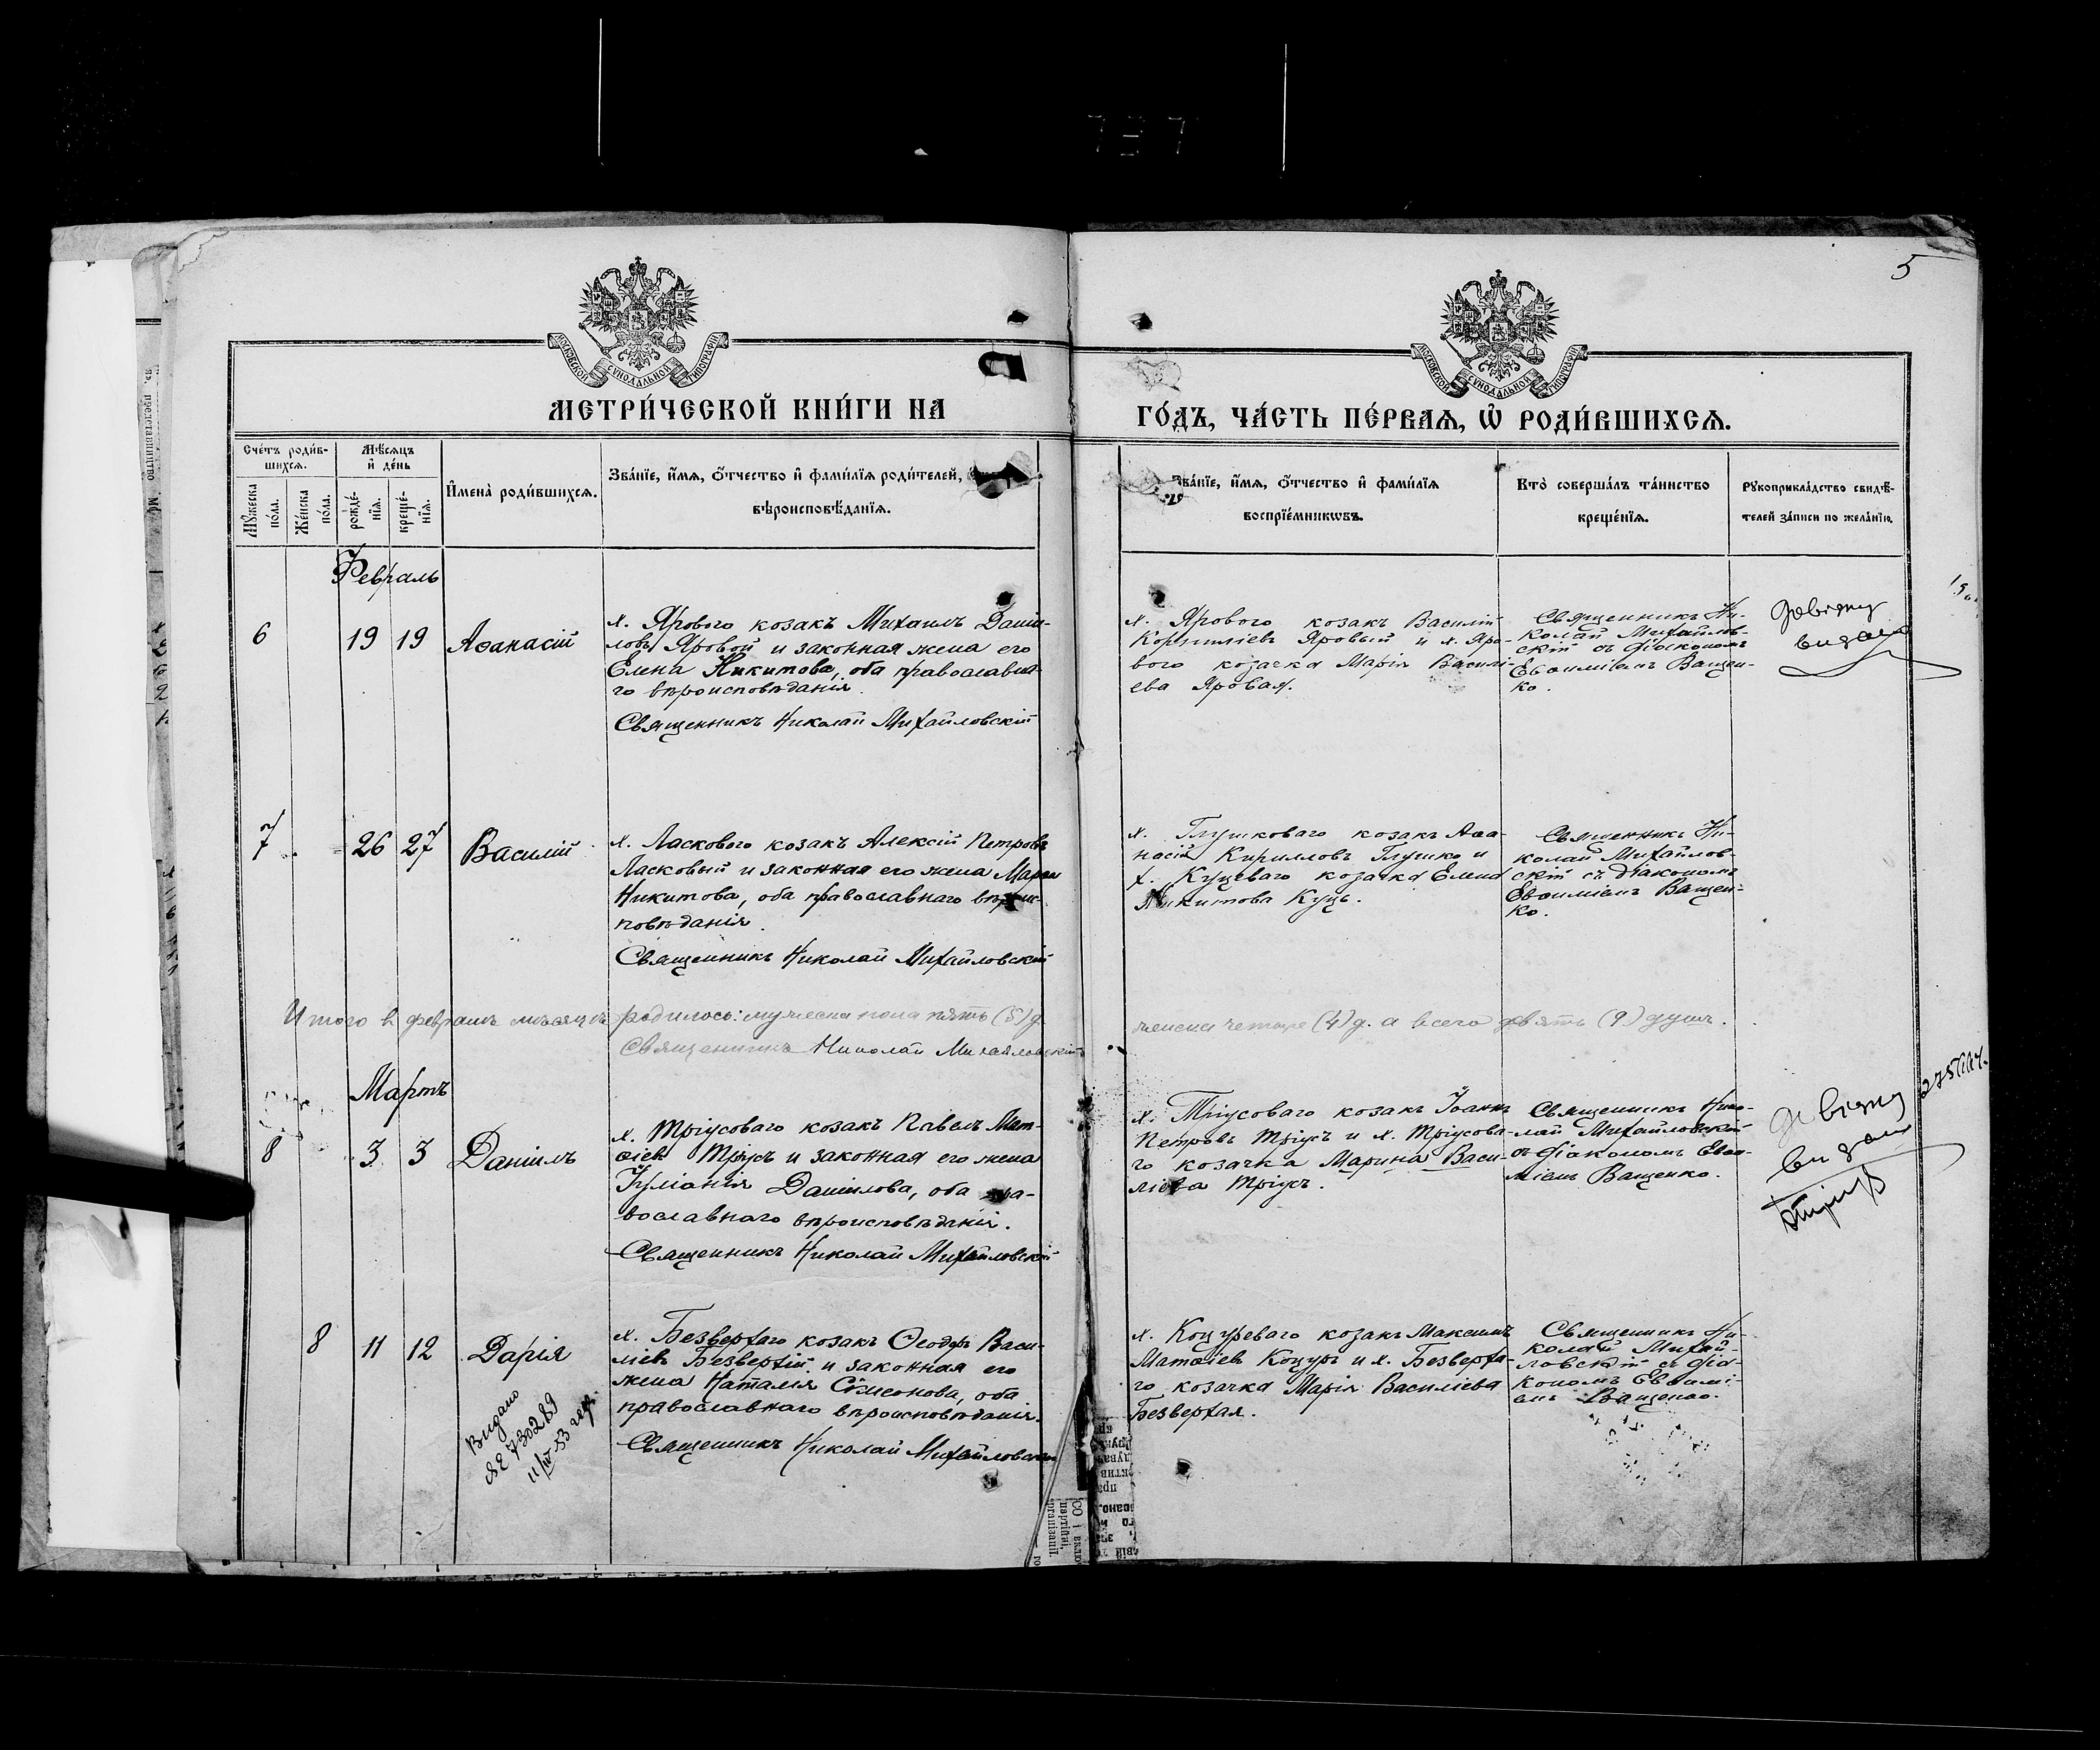 5
МОСКОВСКОЙ СѴНОДАЛЬНОЙ ТИПОГРАФІИ
МОСКОВСКОЙ СѴНОДАЛЬНОЙ ТИПОГРАФІИ
МЕТРИ́ЧЕСКОЙ КНИ́ГИ НА
ГО́ДЪ, ЧА́СТЬ ПЕ́РВАѦ, Ѡ҆ РОДИ́ВШИХСѦ.
Сче́тъ роди́в-
шихсѧ.
Мѣ́сѧцъ
и҆ де́нь
Мꙋ́жеска
по́ла.
Же́нска
по́ла.
рожде́-
нїѧ.
креще́-
нїѧ.
И҆мена̀ роди́вшихсѧ.
Зва́нїе, и҆́мѧ, ѻ҆́тчество и҆ фами́лїѧ роди́телей,
вѣроисповѣ́данїѧ.
Зва́нїе, и҆́мѧ, ѻ҆́тчество и҆ фами́лїѧ
воспрїе́мникѡвъ.
Кто̀ соверша́лъ та́инство
креще́нїѧ.
Рꙋкоприкла́дство свидѣ́-
телей за́писи по жела́нїю.
Февраль
6
19
19
Аѳанасій
х. Ярового козакъ Михаилъ Даніи-
ловъ Яровой и законная жена его
Елена Никитова, оба православна-
го вѣроисповѣданія.
Священникъ Николай Михайловскій
х. Ярового козакъ Василій
Корниліевъ Яровый и х. Яро-
вого козачка Марія Василі-
ева Яровая.
Священникъ Ни-
колай Михайлов-
скій съ діакономъ
Евѳиміемъ Ващен-
ко.
Довідку
видано
7
26
27
Василій
х. Ласкового козакъ Алексій Петровъ
Ласковый и законная его жена Марія
Никитова, оба православнаго вѣроис-
повѣданія.
Священникъ Николай Михайловскій
х. Глушковаго козакъ Аѳа-
насій Кирилловъ Глушко и
х. Куцеваго козачка Елена
Никитова Куць.
Священникъ Ни-
колай Михайлов-
скій съ діакономъ
Евѳиміемъ Ващен-
ко.
Итого въ февралѣ мѣсяцѣ родилось: мужеска пола пять (5) д.
женска четыре (4) д. а всего девять (9) душъ.
Священникъ Николай Михайловскій
Мартъ
8
3
3
Даніилъ
х. Тріусоваго козакъ Павелъ Мат-
ѳіевъ Тріусъ и законная его жена
Іуліанія Даніилова, оба пра-
вославнаго вѣроисповѣданія.
Священникъ Николай Михайловскій
х. Тріусоваго козакъ Іоаннъ
Петровъ Тріусъ и х. Тріусова-
го козачка Марина Васи-
ліева Тріусъ.
Священникъ Нико-
лай Михайловскій
съ діакономъ Евѳи-
міемъ Ващенко.
Довідку
видано
8
11
12
Дарія
х. Безверхаго козакъ Ѳеодоръ Васи-
ліевъ Безверхій и законная его
жена Наталія Сѵмеонова, оба
православнаго вѣроисповѣданія.
Священникъ Николай Михайловскій
х. Коцуреваго козакъ Максимъ
Матѳіевъ Коцуръ и х. Безверха-
го козачка Марія Василіева
Безверхая.
Священникъ Ни-
колай Михай-
ловскій съ діа-
кономъ Евѳимі-
емъ Ващенко.
Видано
730289
11/IV 53